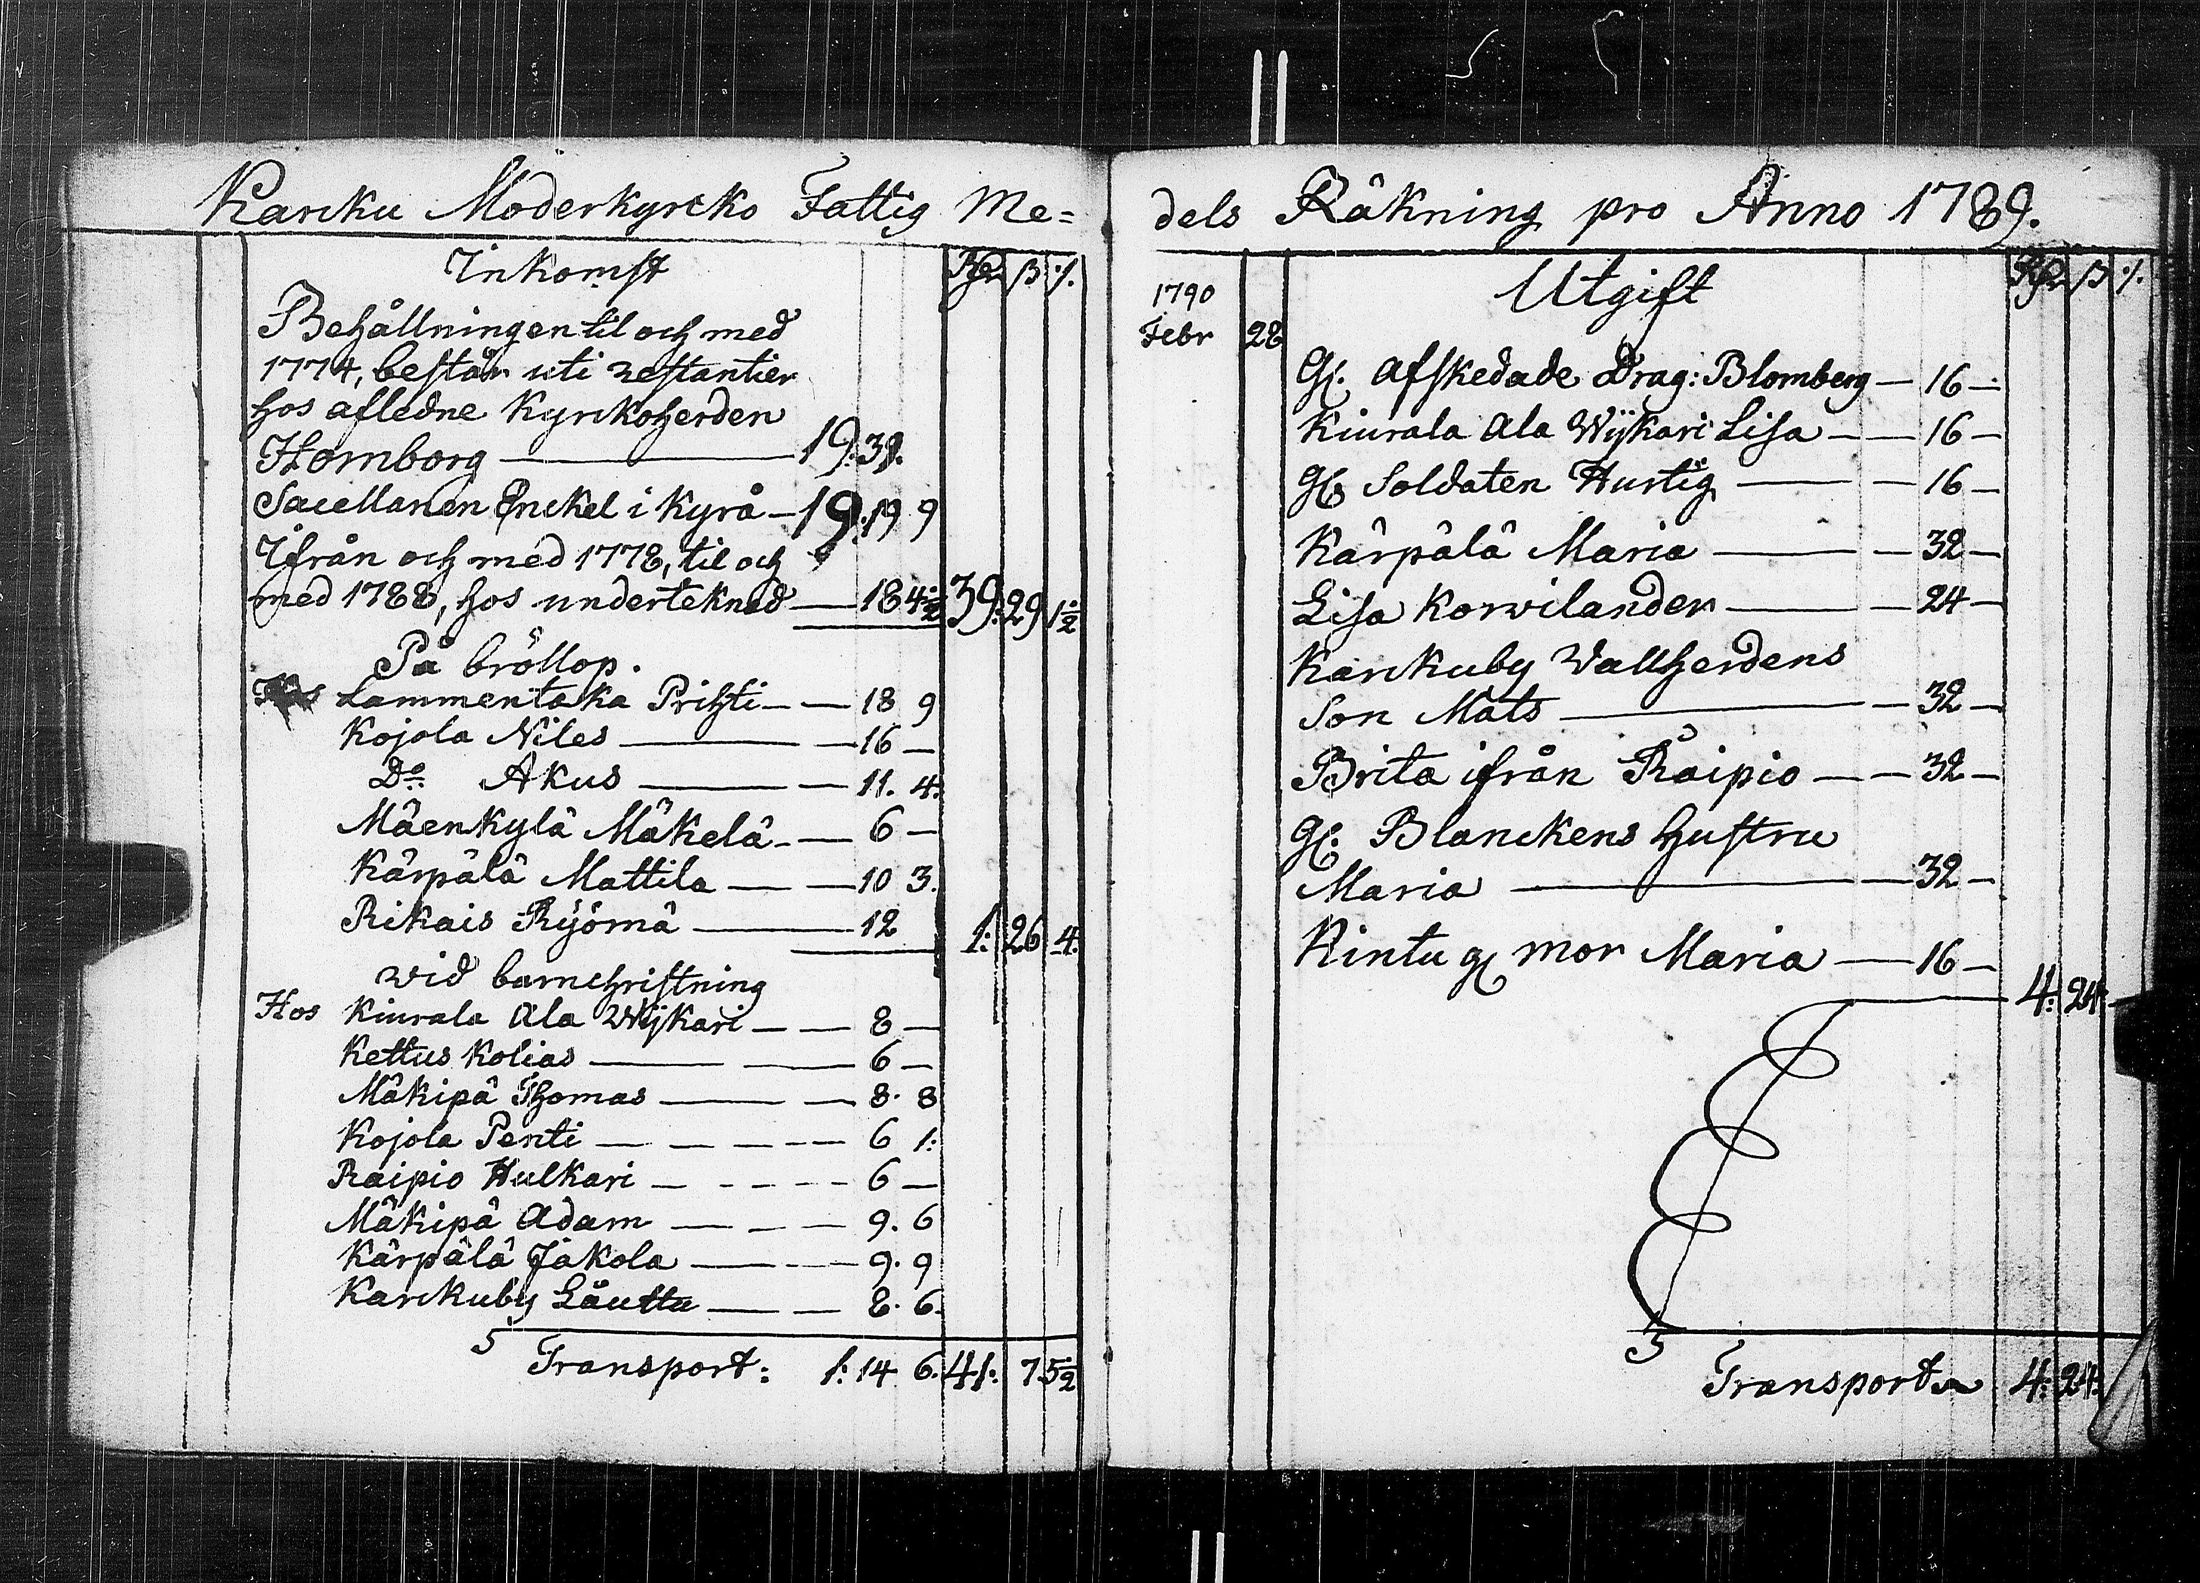 Karcku Moderkyrcko Fattig Me=
Inkomst Rdr ß :/.
Behållningen til och med
1774, består uti restantier
hos afledne Kyrckoherden
Homborg — 19:39.
Sacellanen Enckel i Kyrå — 19:19 9
Ifrån och med 1778, til och
med 1788, hos underteknad — 18 4 1/2 39: 29 1 1/2
På bröllop.
Hos Lammentaka Prihti — — 18 9
Kojola Niles — — 16 —
Do Akus — — 11. 4:
Mäenkylä Mäkelä — — 6 —
Kärpälä Mattila — — 10 3.
Rikais Ryömä — 12 1: 26 4:
wid barnchristning
Hos Kiurala Ala Wijkari — — 8 —
Kettus Kolias — — 6 —
Mäkipä Thomas — — 8. 8
Kojola Penti — — — — — 6 1:
Raipio Hulkari — — — — — 6 —
Mäkipä Adam — — — 9. 6
Kärpälä Jakola — — — 9. 9
Karckuby Låuttu — — 8. 6.
Transport: 1: 14 6. 41: 7. 5 1/2
dels Räkning pro Anno 1789.
Utgift Rdr ß :/.
1790
Febr 28
Gl. Afskedade Drag: Blomberg — 16 —
Kiurala Ala Wijkari Lisa — — 16 —
Gl. Soldaten Hurtig — — 16 —
Kärpälä Maria — — 32 —
Lisa Korwilander — — 24 —
Karckuby Wallherdens
Son Mats — — 32 —
Brita ifrån Raipio — — 32 —
gl. Blanckens hustru
Maria — — 32 —
Kintu gl mor Maria — 16 —
4: 24: —
Transport 4: 24: